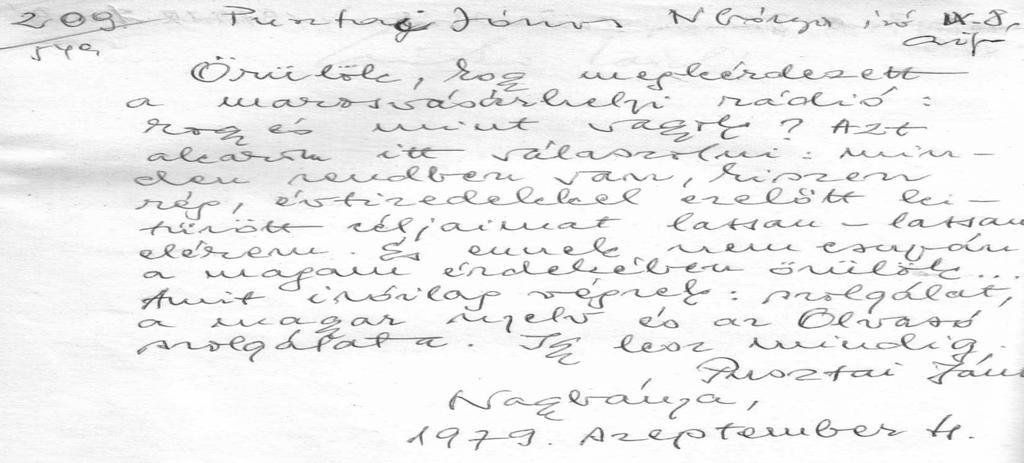 209. Pusztai János Nbánya író IX. 8.
549
Örülök, hogy megkérdezett
a marosvásárhelyi rádió:
hogy és mint vagyok? Azt
akarom itt válaszolni: min-
den rendben van, hiszen
rég, évtizedekkel ezelőtt ki-
tűzött céljaimat lassan-lassan
elérem. És ennek nem csupán
a magam érdekében örülök...
Amit íróilag végzek: szolgálat,
a magyar nyelv és az Olvasó
szolgálata. Így lesz mindig.
Pusztai Ján
Nagybánya,
1979. szeptember 4.